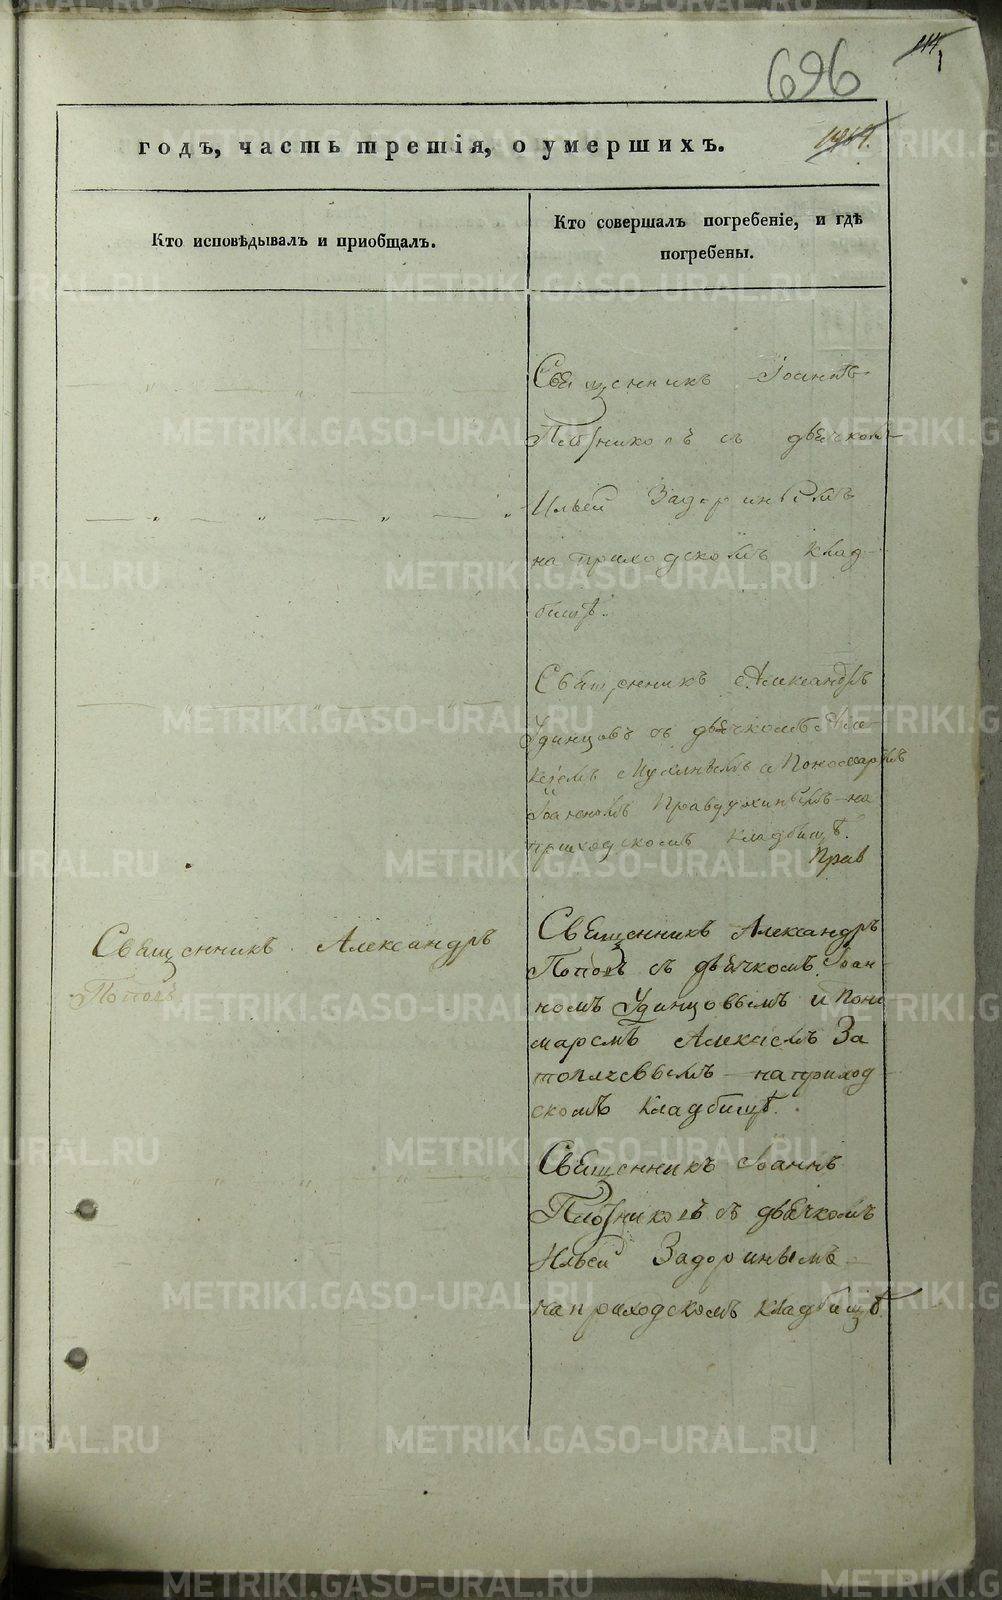 696
годъ, часть третія, о умершихъ.
Кто исповѣдывалъ и пріобщалъ.
Кто совершалъ погребеніе, и гдѣ
погребены.
Священникъ Іоаннъ
Плотниковъ съ дьячкомъ
Ильей Задоринымъ
на приходскомъ клад-
бищѣ.
Священникъ Александръ
Удинцовъ съ дьячкомъ Але-
и Пономаремъ
на
приходскомъ кладбищѣ.
Прав
Священникъ Александръ
Поповъ
Священникъ Александръ
Поповъ съ дьячкомъ Іоан-
номъ Удинцовымъ и Поно
маремъ Алексѣемъ За
топляевымъ на приход
скомъ кладбищѣ.
Священникъ Іоаннъ
Плотниковъ съ дьячкомъ
Ильей Задоринымъ
на приходскомъ кладбищѣ
METRIKI.GASO-URAL.RU